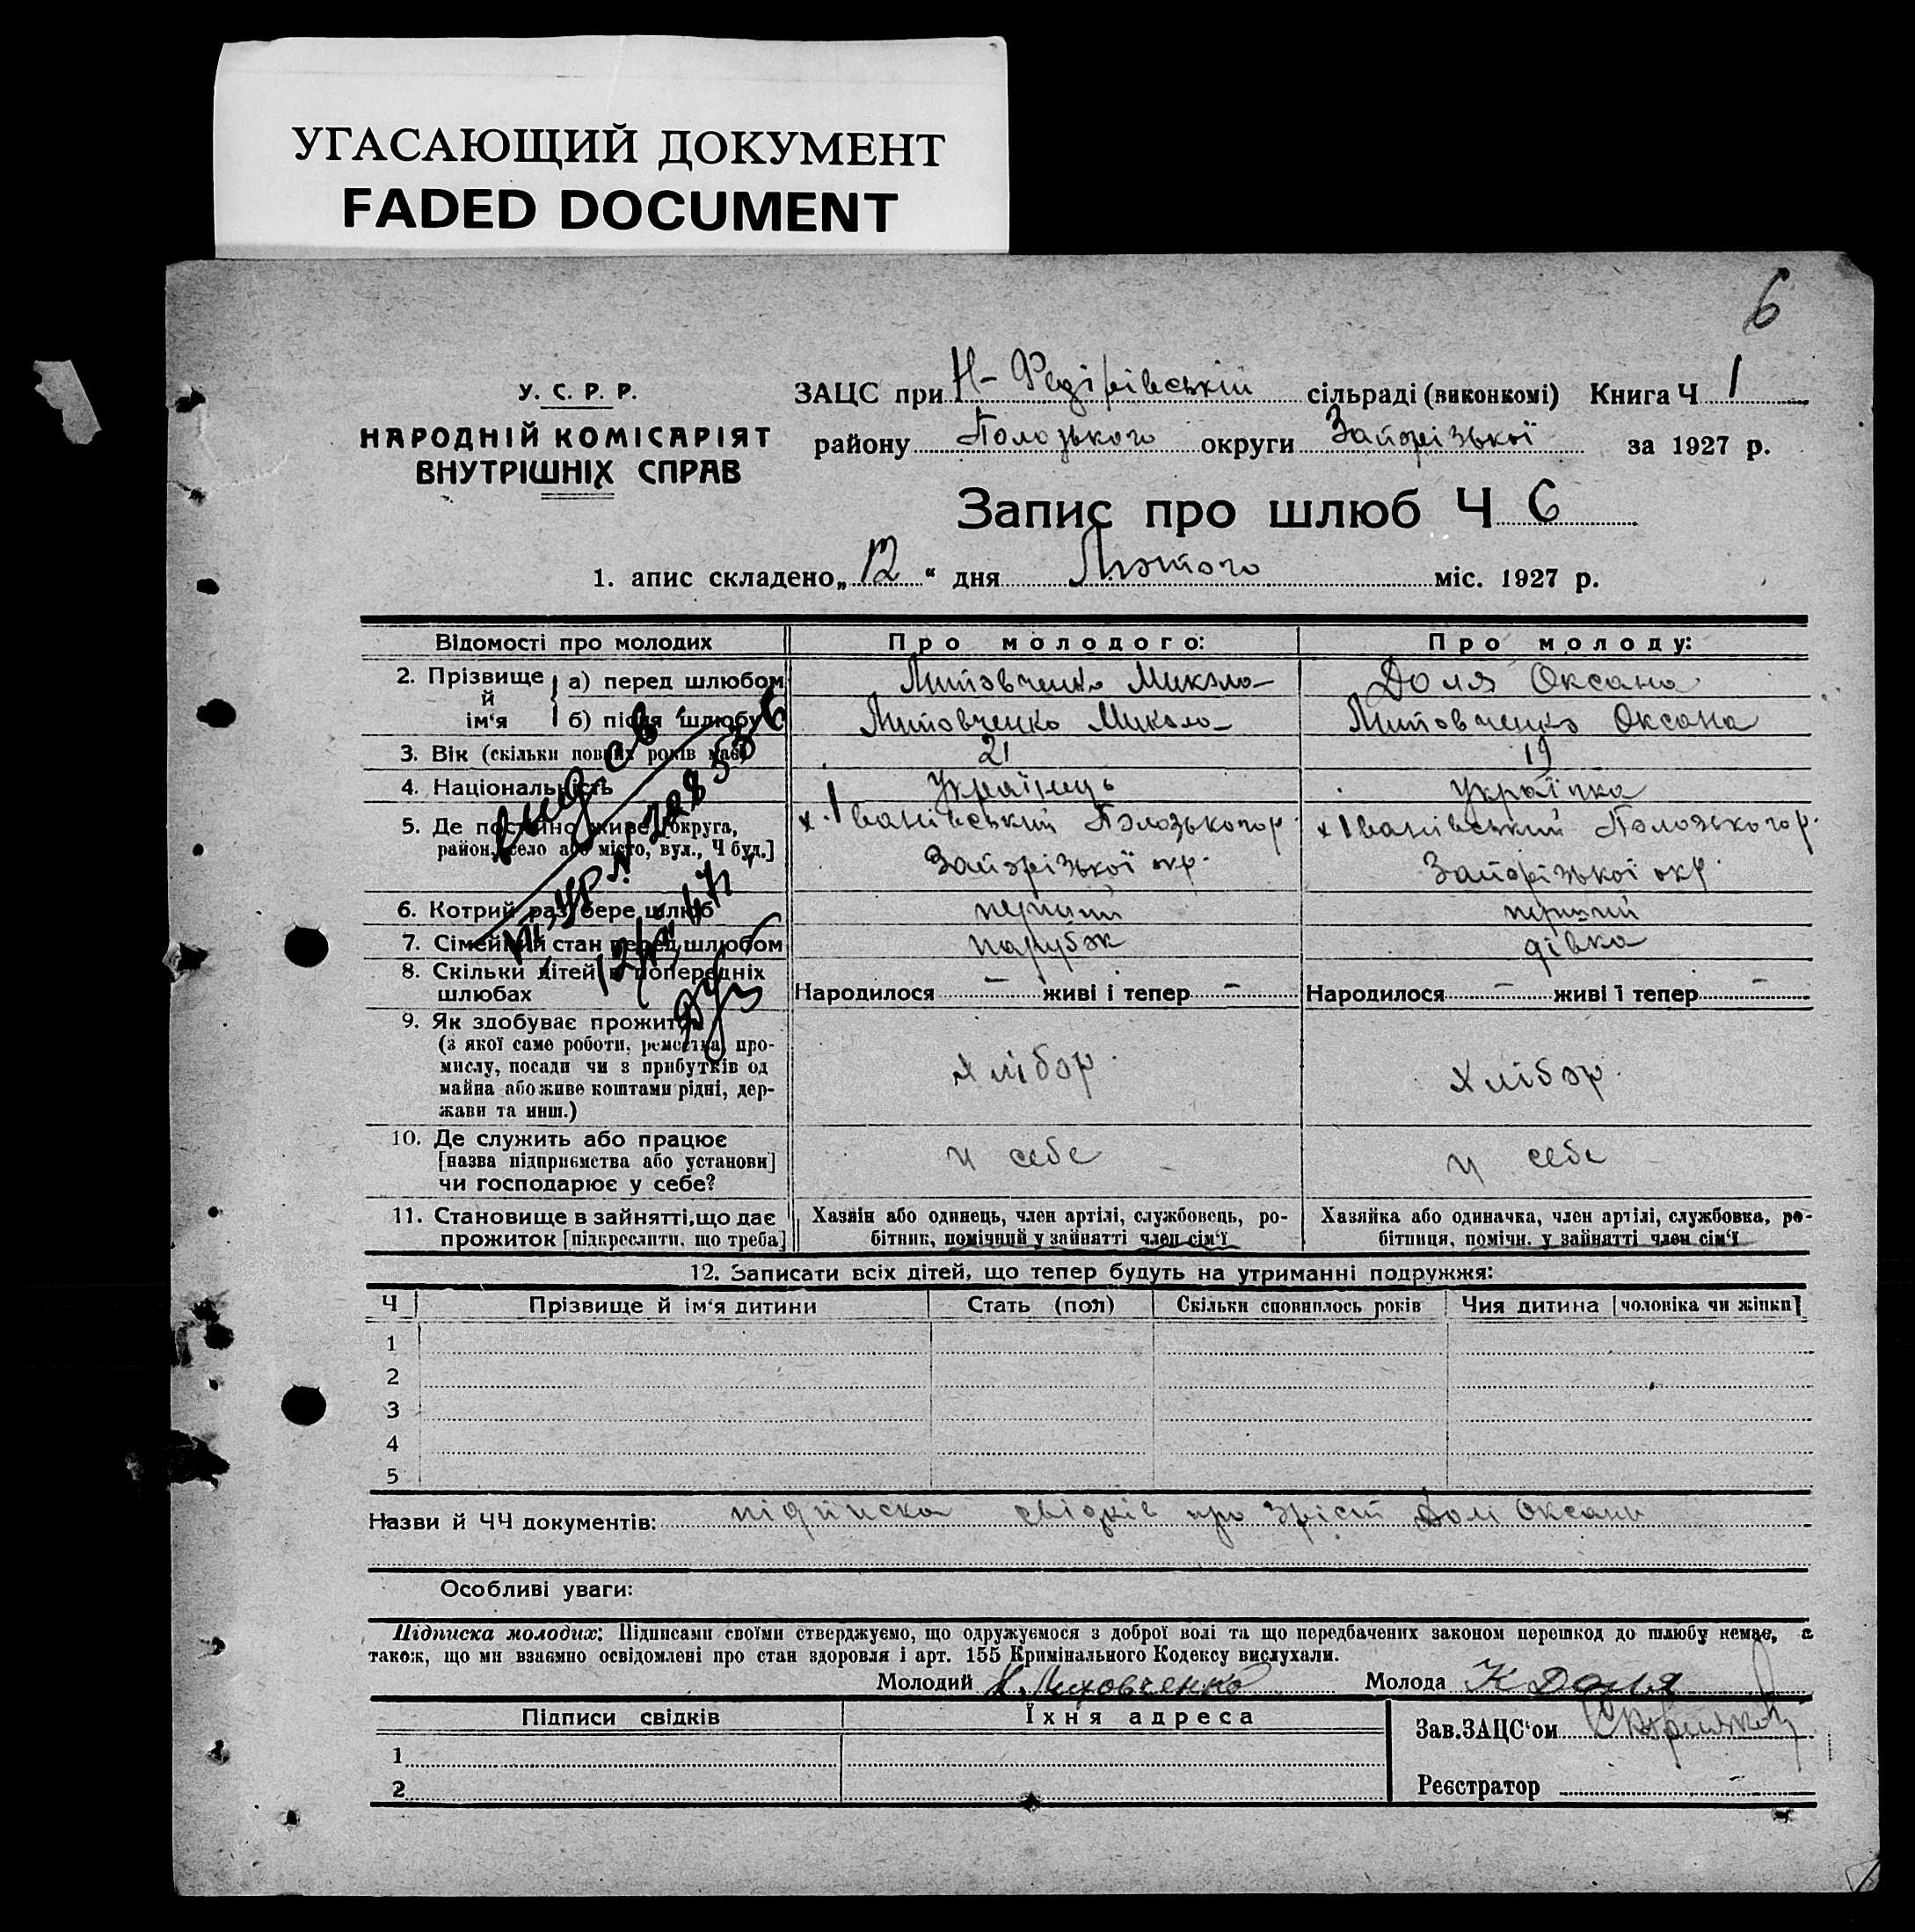 УГАСАЮЩИЙ ДОКУМЕНТ
FADED DOCUMENT
6
У. С. Р. Р.
НАРОДНІЙ КОМІСАРІЯТ
ВНУТРІШНІХ СПРАВ
ЗАЦС при Н-Федірівській сільраді (виконкомі) Книга Ч 1
району Полозького округи Запорізької за 1927 р.
Запис про шлюб Ч 6
1. апис складено „12“ дня Лютого міс. 1927 р.
Відомості про молодих Про молодого: Про молоду:
2. Прізвище й ім‘я а) перед шлюбом Литовченко Микола Доля Оксана
б) після шлюбу Литовченко Микола Литовченко Оксана
3. Вік (скільки повних років має) 21 19
4. Національність Українець Українка
5. Де постійно живе [округа, х. Іванівський Полозького р. х Іванівський Полозького р.
район, село або місто, вул., Ч буд.] Запорізької окр. Запорізької окр.
6. Котрий раз бере шлюб перший перший
7. Сімейний стан перед шлюбом парубок дівка
8. Скільки дітей в попередніх
шлюбах Народилося — живі і тепер — Народилося — живі ї тепер —
9. Як здобуває прожиток
(з якої саме роботи, ремества, про-
мислу, посади чи з прибутків од
майна або живе коштами рідні, дер-
жави та инш.) хлібор. хлібор.
10. Де служить або працює
[назва підприємства або установи] у себе у себе
чи господарює у себе?
11. Становище в зайнятті, що дає Хазяїн або одинець, член артілі, службовець, ро- Хазяйка або одиначка, член артілі, службовка, ро-
прожиток [підкреслити, що треба] бітник, помічний у зайнятті член сім‘ї бітниця, помічн. у зайнятті член сім‘ї
12. Записати всіх дітей, що тепер будуть на утриманні подружжя:
Ч Прізвище й ім‘я дитини Стать (пол) Скільки сповнилось років Чия дитина [чоловіка чи жінки]
1
2
3
4
5
Назви й ЧЧ документів: підписка свідків про зріст Долі Оксани
Особливі уваги:
Підписка молодих: Підписами своїми стверджуємо, що одружуємося з доброї волі та що передбачених законом перешкод до шлюбу немає, а
також, що ми взаємно освідомлені про стан здоровля і арт. 155 Кримінального Кодексу вислухали.
Молодий Молода К Доля
Підписи свідків Їхня адреса
Зав.ЗАЦС‘ом
1
2
Реєстратор